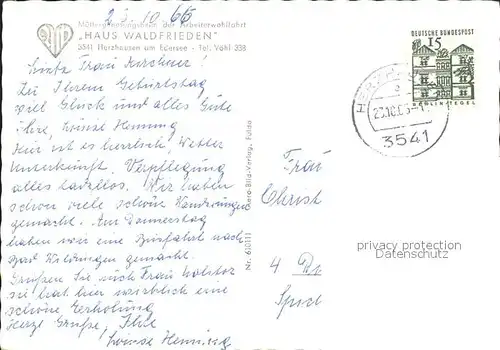 23.10.65
Müttergenesungsheim der Arbeiterwohlfahrt
„HAUS WALDFRIEDEN"
3541 Herzhausen am Edersee - Tel. Vöhl 338
Liebe Frau Kirchner!
Zu Ihrem Geburtstag
viel Glück und alles Gute
ihre, Luise Henning
Hier ist es herrlich, Wetter
Unterkunft, Verpflegung
alles tadellos. Wir haben
schon viele schöne Wanderungen
gemacht. Am Donnerstag
haben wir eine Busfahrt nach
Bad Wildungen gemacht.
Grüßen Sie auch Frau
sie hat hier wirklich eine
schöne Erholung
Herzl Grüße, Ihre
Luise Henning
Aero-Bild-Verlag, Fulda
Nr. 610111
DEUTSCHE BUNDESPOST
15
BERLIN-TEGEL
3541
Frau
Christ
4 Dü
privacy protection
Datenschutz